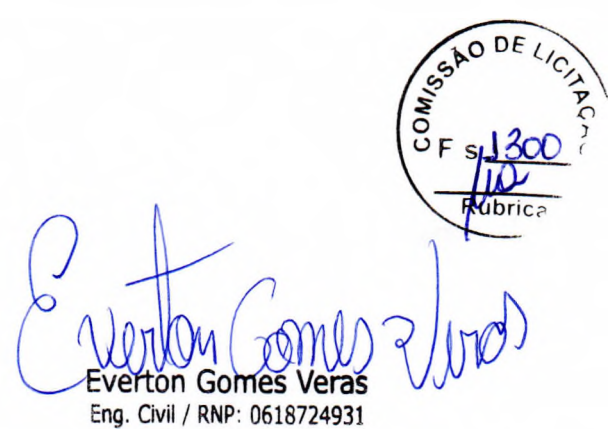 COMISSÃO DE LICITAÇÃ
F s 1300
Rubrica
Everton Gomes Veras
Everton Gomes Veras
Eng. Civil / RNP: 0618724931